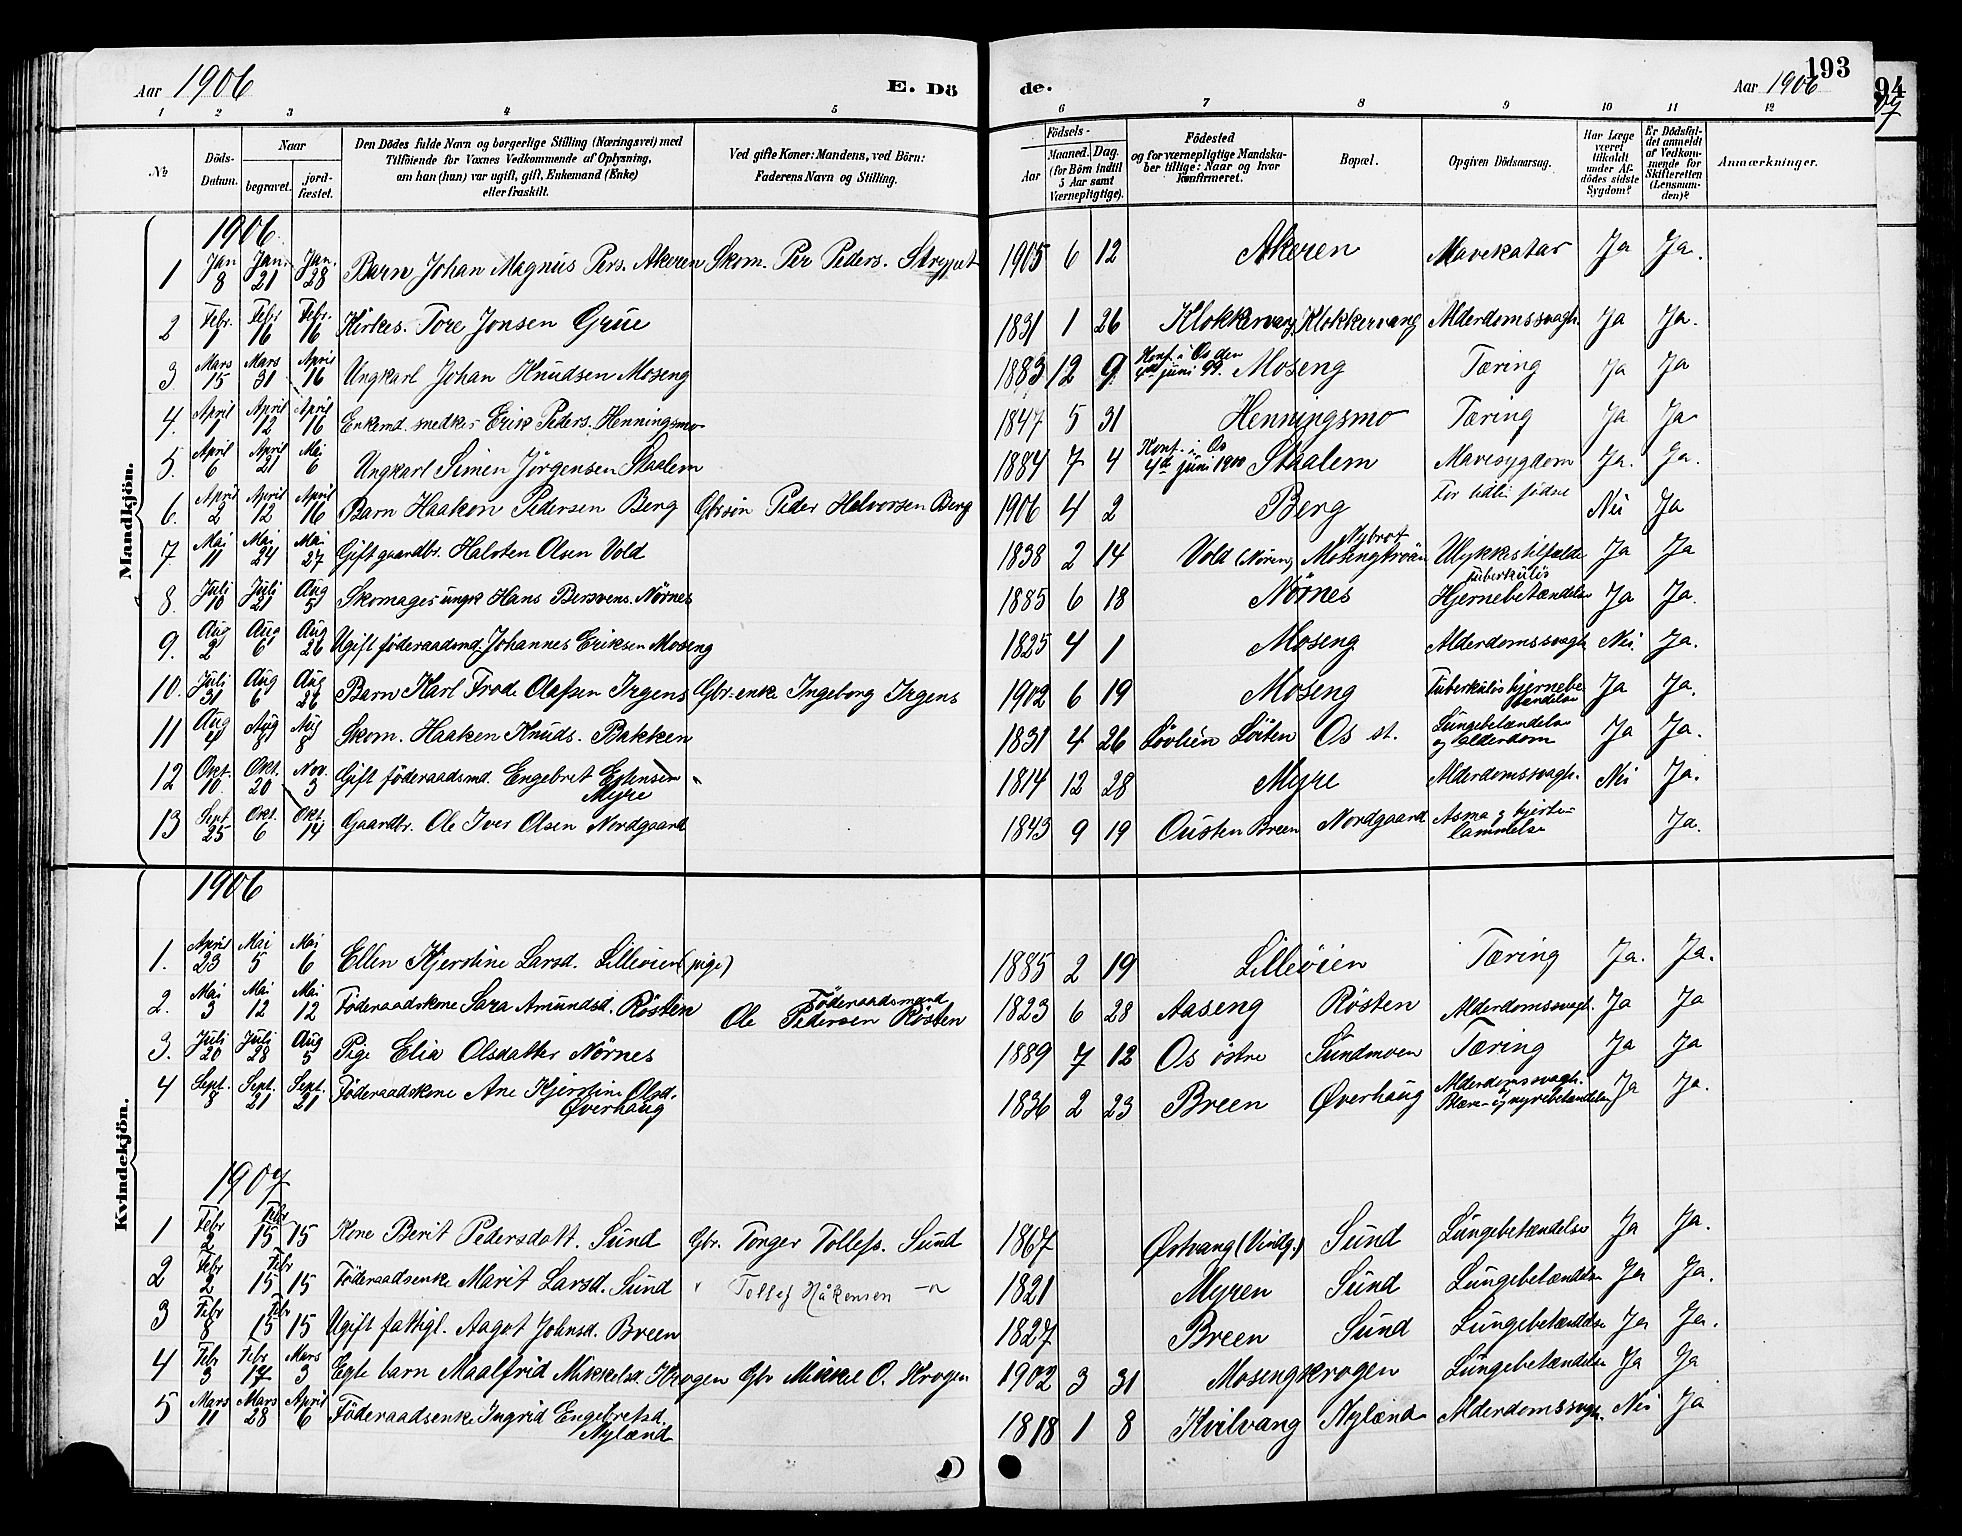 Aar 1906
E. Dö
de.
Aar 1906
193
94
1 2 3 4 5 6 7 8 9 10 11 12
№
Döds-
Datum.
Naar
begravet.
jord-
fæstet.
Den Dödes fulde Navn og borgerlige Stilling (Næringsvei) med
Tilföiende for Voxnes Vedkommende af Oplysning,
om han (hun) var ugift, gift, Enkemand (Enke)
eller fraskilt.
Ved gifte Koner: Mandens, ved Börn:
Faderens Navn og Stilling.
Födsels-
Aar
Maaned. Dag.
(for Börn indtil
5 Aar samt
Værnepligtige).
Födested
og for værnepligtige Mandska-
ber tillige: Naar og hvor
Konfirmeret.
Bopæl.
Opgiven Dödsaarsag.
Har Læge
været
tilkaldt
under Af-
dödes sidste
Sygdom?
Er Dödsfal-
det anmeldt
af Vedkom-
mende for
Skifteretten
(Lensman-
den)?
Anmærkninger.
Mandkjön.
1906
1 Jan 8 Jan. 21 Jan. 28 Barn Johan Magnus Pers. Akeren Skom. Per Peders. Strypet 1905 6 12 Akeren Mavekatar Ja Ja.
2 Febr. 1 Febr 16 Febr. 16 Kirkes. Tore Jonsen Grue 1831 1 26 Klokkervang Klokkervang Alderdomssvagh. Ja Ja.
3 Mars 15 Mars 31 April 16 Ungkarl Johan Knudsen Moseng 1883 12 9 Konf. i Os den 4de juni 99. Moseng Tæring Ja Ja
4. April 1 April 12 April 16 Enkemd. snedker Erik Peders. Henningsmo 1847 5 31 Henningsmo Tæring Ja Ja
5. April 6 April 21 Mai 6 Ungkarl Simen Jörgensen Staalem 1884 7 4 Konf. i Os 4de juni 1900 Staalem Mavesygdom Ja. Ja.
6. April 2 April 12 April 16 Barn Haakon Pedersen Berg Gbrsön Peder Halvorsen Berg 1906 4 2 Berg For tidli. födne Nei Ja
7. Mai 11 Mai 24 Mai 27 Gift gaardbr. Halsten Olsen Vold 1838 2 14 Vold (Nören) Nybrot Mosengtröan Ulykkestilfælde Ja Ja
8. Juli 10 Juli 21 Aug 5 Skomager ungk Hans Bersvens. Nörnes 1885 6 18 Nörnes tuberkulös Hjernebetændelse Ja Ja.
9. Aug 2 Aug 6 Aug 26 Ugift föderaadsmd. Johannes Eriksen Moseng 1825 4 1 Moseng Alderdomssvagh Nei Ja.
10. Juli 31 Aug 6 Aug 26 Barn Karl Frode Olafsen Irgens Gbr-enke Ingeborg Irgens 1902 6 19 Moseng Tuberkulös hjernebe tændelse Ja Ja.
11 Aug 4 Aug 8 Aug 8 Skom. Haaken Knuds. Bakken 1831 4 26 Lövlien Löiten Os st. Lungebetændelse og alderdom Ja Ja.
12 Okt. 10 Okt. 20 Nov. 3 Gift föderaadsmd. Engebret Estensen Myre 1814 12 28 Myre Alderdomssvagh. Nei Ja.
13 Sept. 25 Okt. 6 Okt. 14 Gaardbr. Ole Iver Olsen Nordgaard 1843 9 19 Ousten Breen Nordgaard Asma og hjerte- lammelse Ja.
Kvindekjön.
1906
1. April 23 Mai 5 Mai 6 Ellen Kjerstine Larsd. Lilleöien (pige) 1885 2 19 Lilleöien Tæring Ja. Ja.
2. Mai 3 Mai 12 Mai 12 Föderaadskone Sara Amundsd. Rösten Föderaadsmand Ole Pedersen Rösten 1823 6 28 Aaseng Rösten Alderdomssvagh. Ja Ja
3. Juli 20 Juli 28 Aug 5 Pige Elia Olsdatter Nörnes 1889 7 12 Os östre Sundmoen Tæring Ja Ja
4 Sept. 8 Sept. 21 Sept. 21 Föderaadskone Ane Kjerstine Olsd. Øverhaug 1836 2 23 Breen Øverhaug Alderdomssvagh. Blære- og nyrebetændelse Ja Ja.
1907
1 Febr 2 Febr 15 15 Kone Berit Pedersdatt. Sund Gbr. Torger Tollefs. Sund 1867 Østvang (Vindg.) Sund Lungebetændelse Ja Ja.
2 Febr 2 Febr 15 15 Föderaadsenke Marit Larsd. Sund " Tollef Håkensen —"— 1821 Myren Sund Lungebetændelse Ja Ja.
3 Febr 8 Febr 15 15 Ugift fattigl. Aagot Johnsd. Breen 1827 Breen Sund Lungebetændelse Ja Ja.
4 Febr 3 Febr 17 Mars 3 Egte barn Maalfrid Mikkelsd. Krogen Gbr Mikkel O. Krogen 1902 3 31 Mosengkrogen Lungebetændelse Ja Ja
5 Mars 11 Mars 28 April 6 Föderaadsenke Ingrid Engebretsd. Nylænd 1818 1 8 Kvilvang Nylænd Alderdomssvagh. Nei Ja